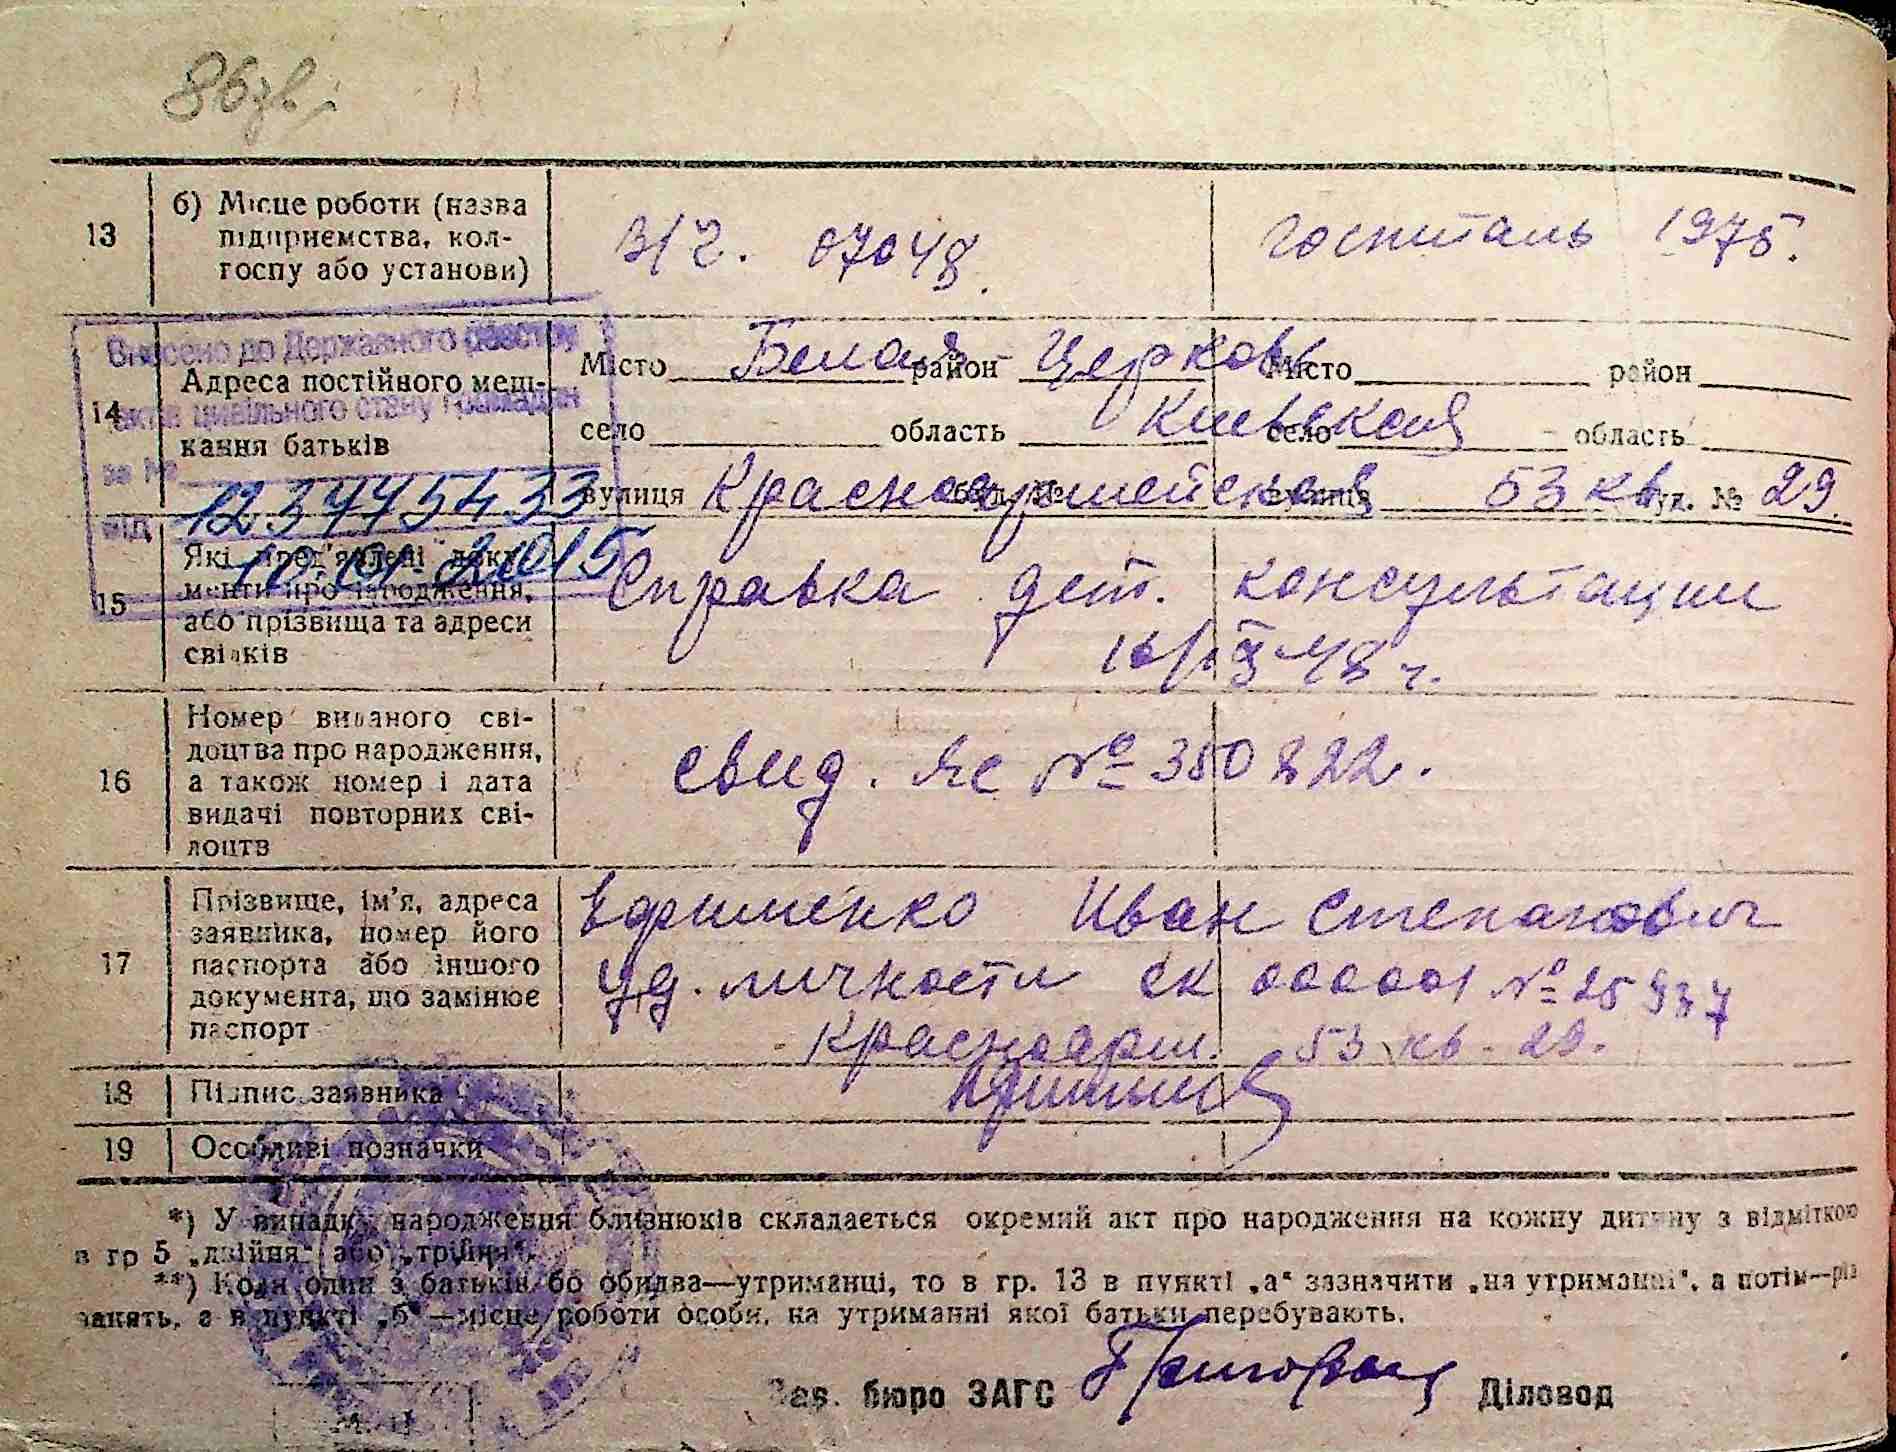 86зв.
13 б) Місце роботи (назва підприємства, колгоспу або установи)
в/ч. 07048. госпиталь 1975.
Внесено до Державного реєстру
актів цивільного стану громадян
за №
123775433
від 10.01.2015
14 Адреса постійного мешкання батьків
Місто Белая район Церковь Місто район
село область Киевская село область
вулиця Красноармейская буд. № вулиця 53 кв буд. № 29.
15 Які пред'явлені документи про народження, або прізвища та адреси свідків
Справка дет. консультации
48 г.
16 Номер виданого свідоцтва про народження, а також номер і дата видачі повторних свідоцтв
свид. № 350822.
17 Прізвище, ім'я, адреса заявника, номер його паспорта або іншого документа, що замінює паспорт
Ефименко Иван Степанович
Уд. личности № 25937
Красноарм. 53 кв. 29.
18 Підпис заявника
19 Особливі позначки
*) У випадку народження близнюків складається окремий акт про народження на кожну дитину з відміткою
в гр 5 „двійня“ або „трійня“.
**) Коли один з батьків бо обидва—утриманці, то в гр. 13 в пункті „а“ зазначити „на утриманні“, а потім—рід
занять, а в пункті „б“—місце роботи особи, на утриманні якої батьки перебувають.
Зав. бюро ЗАГС Діловод
М. П.